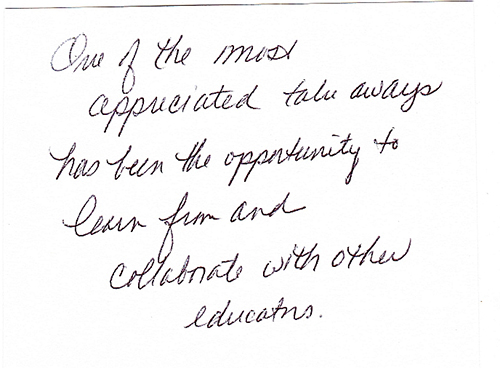 One of the most
appreciated take aways
has been the opportunity to
learn from and
collaborate with other
educators.